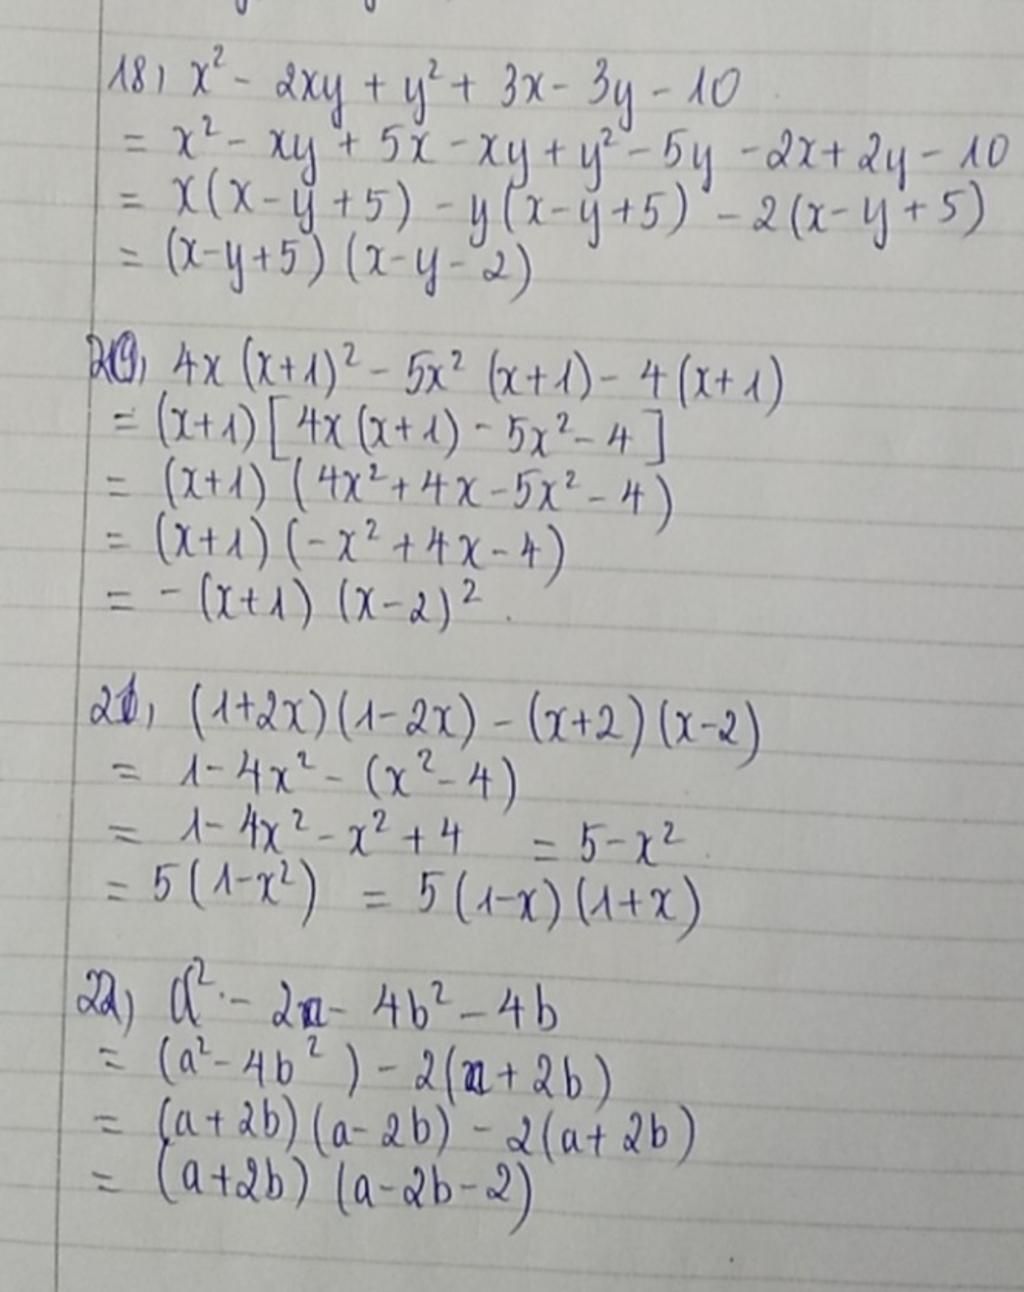 18, x² - 2xy + y² + 3x - 3y - 10
= x² - xy + 5x - xy + y² - 5y - 2x + 2y - 10
= x(x-y+5) - y(x-y+5) - 2(x-y+5)
= (x-y+5) (x-y-2)
4x (x+1)² - 5x² (x+1) - 4(x+1)
= (x+1) [4x(x+1) - 5x² - 4]
= (x+1) (4x² + 4x - 5x² - 4)
= (x+1) (-x² + 4x - 4)
= - (x+1) (x-2)².
21, (1+2x)(1-2x) - (x+2)(x-2)
= 1 - 4x² - (x² - 4)
= 1 - 4x² - x² + 4 = 5 - x²
= 5(1-x²) = 5(1-x)(1+x)
22, a² - 2a - 4b² - 4b
= (a² - 4b²) - 2(a + 2b)
= (a+2b)(a-2b) - 2(a+2b)
= (a+2b) (a-2b-2)